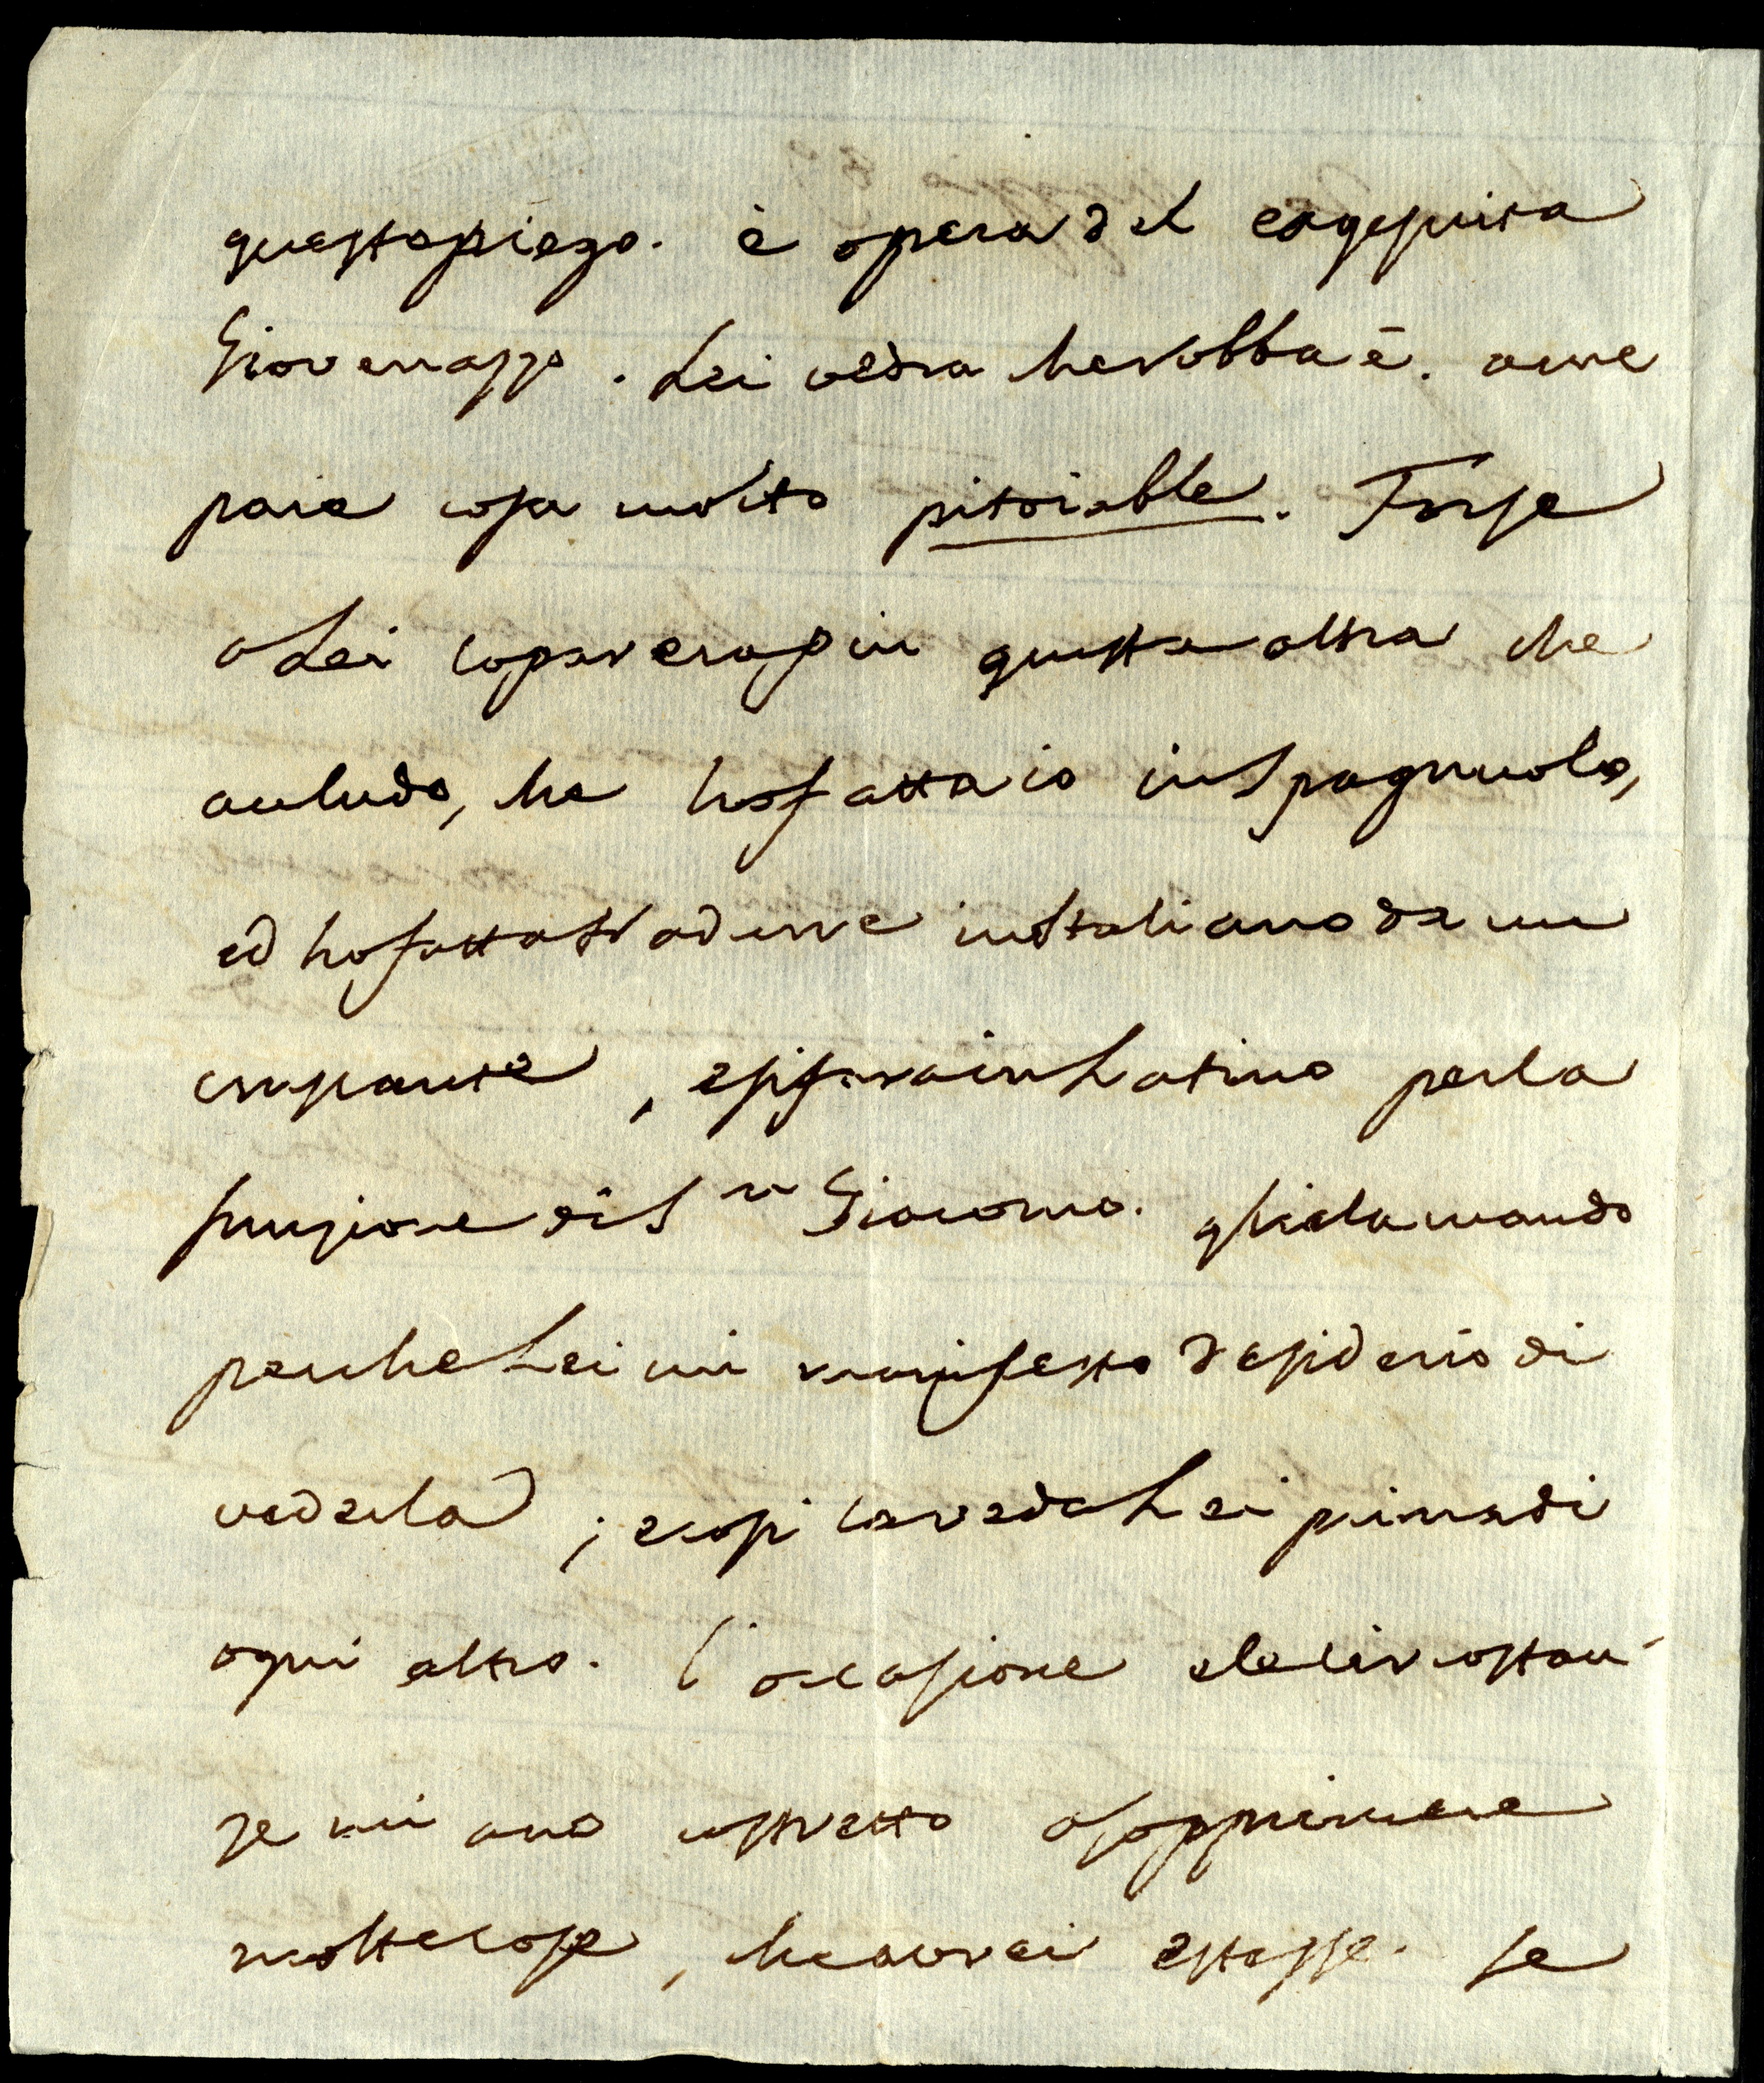 questo piego. è opera del exgesuita
Giovenazzo. Lei vedra che robba è. a me
pare cosa molto pitoiable. Forse
a Lei lo parera piu questa altra che
acludo, che ho fatta io in Spagnuolo,
ed ho fatta tradurre in Italiano da un
, e si fara in Latino per la
funzione di Sn Giacomo. gliela mando
perche Lei mi manifesto desiderio di
vederla; e cosi la veda Lei prima di
ogni altro. l'occasione e le circostan-
ze mi ano costretto a sopprimere
molte cose, che avrei estesse. se